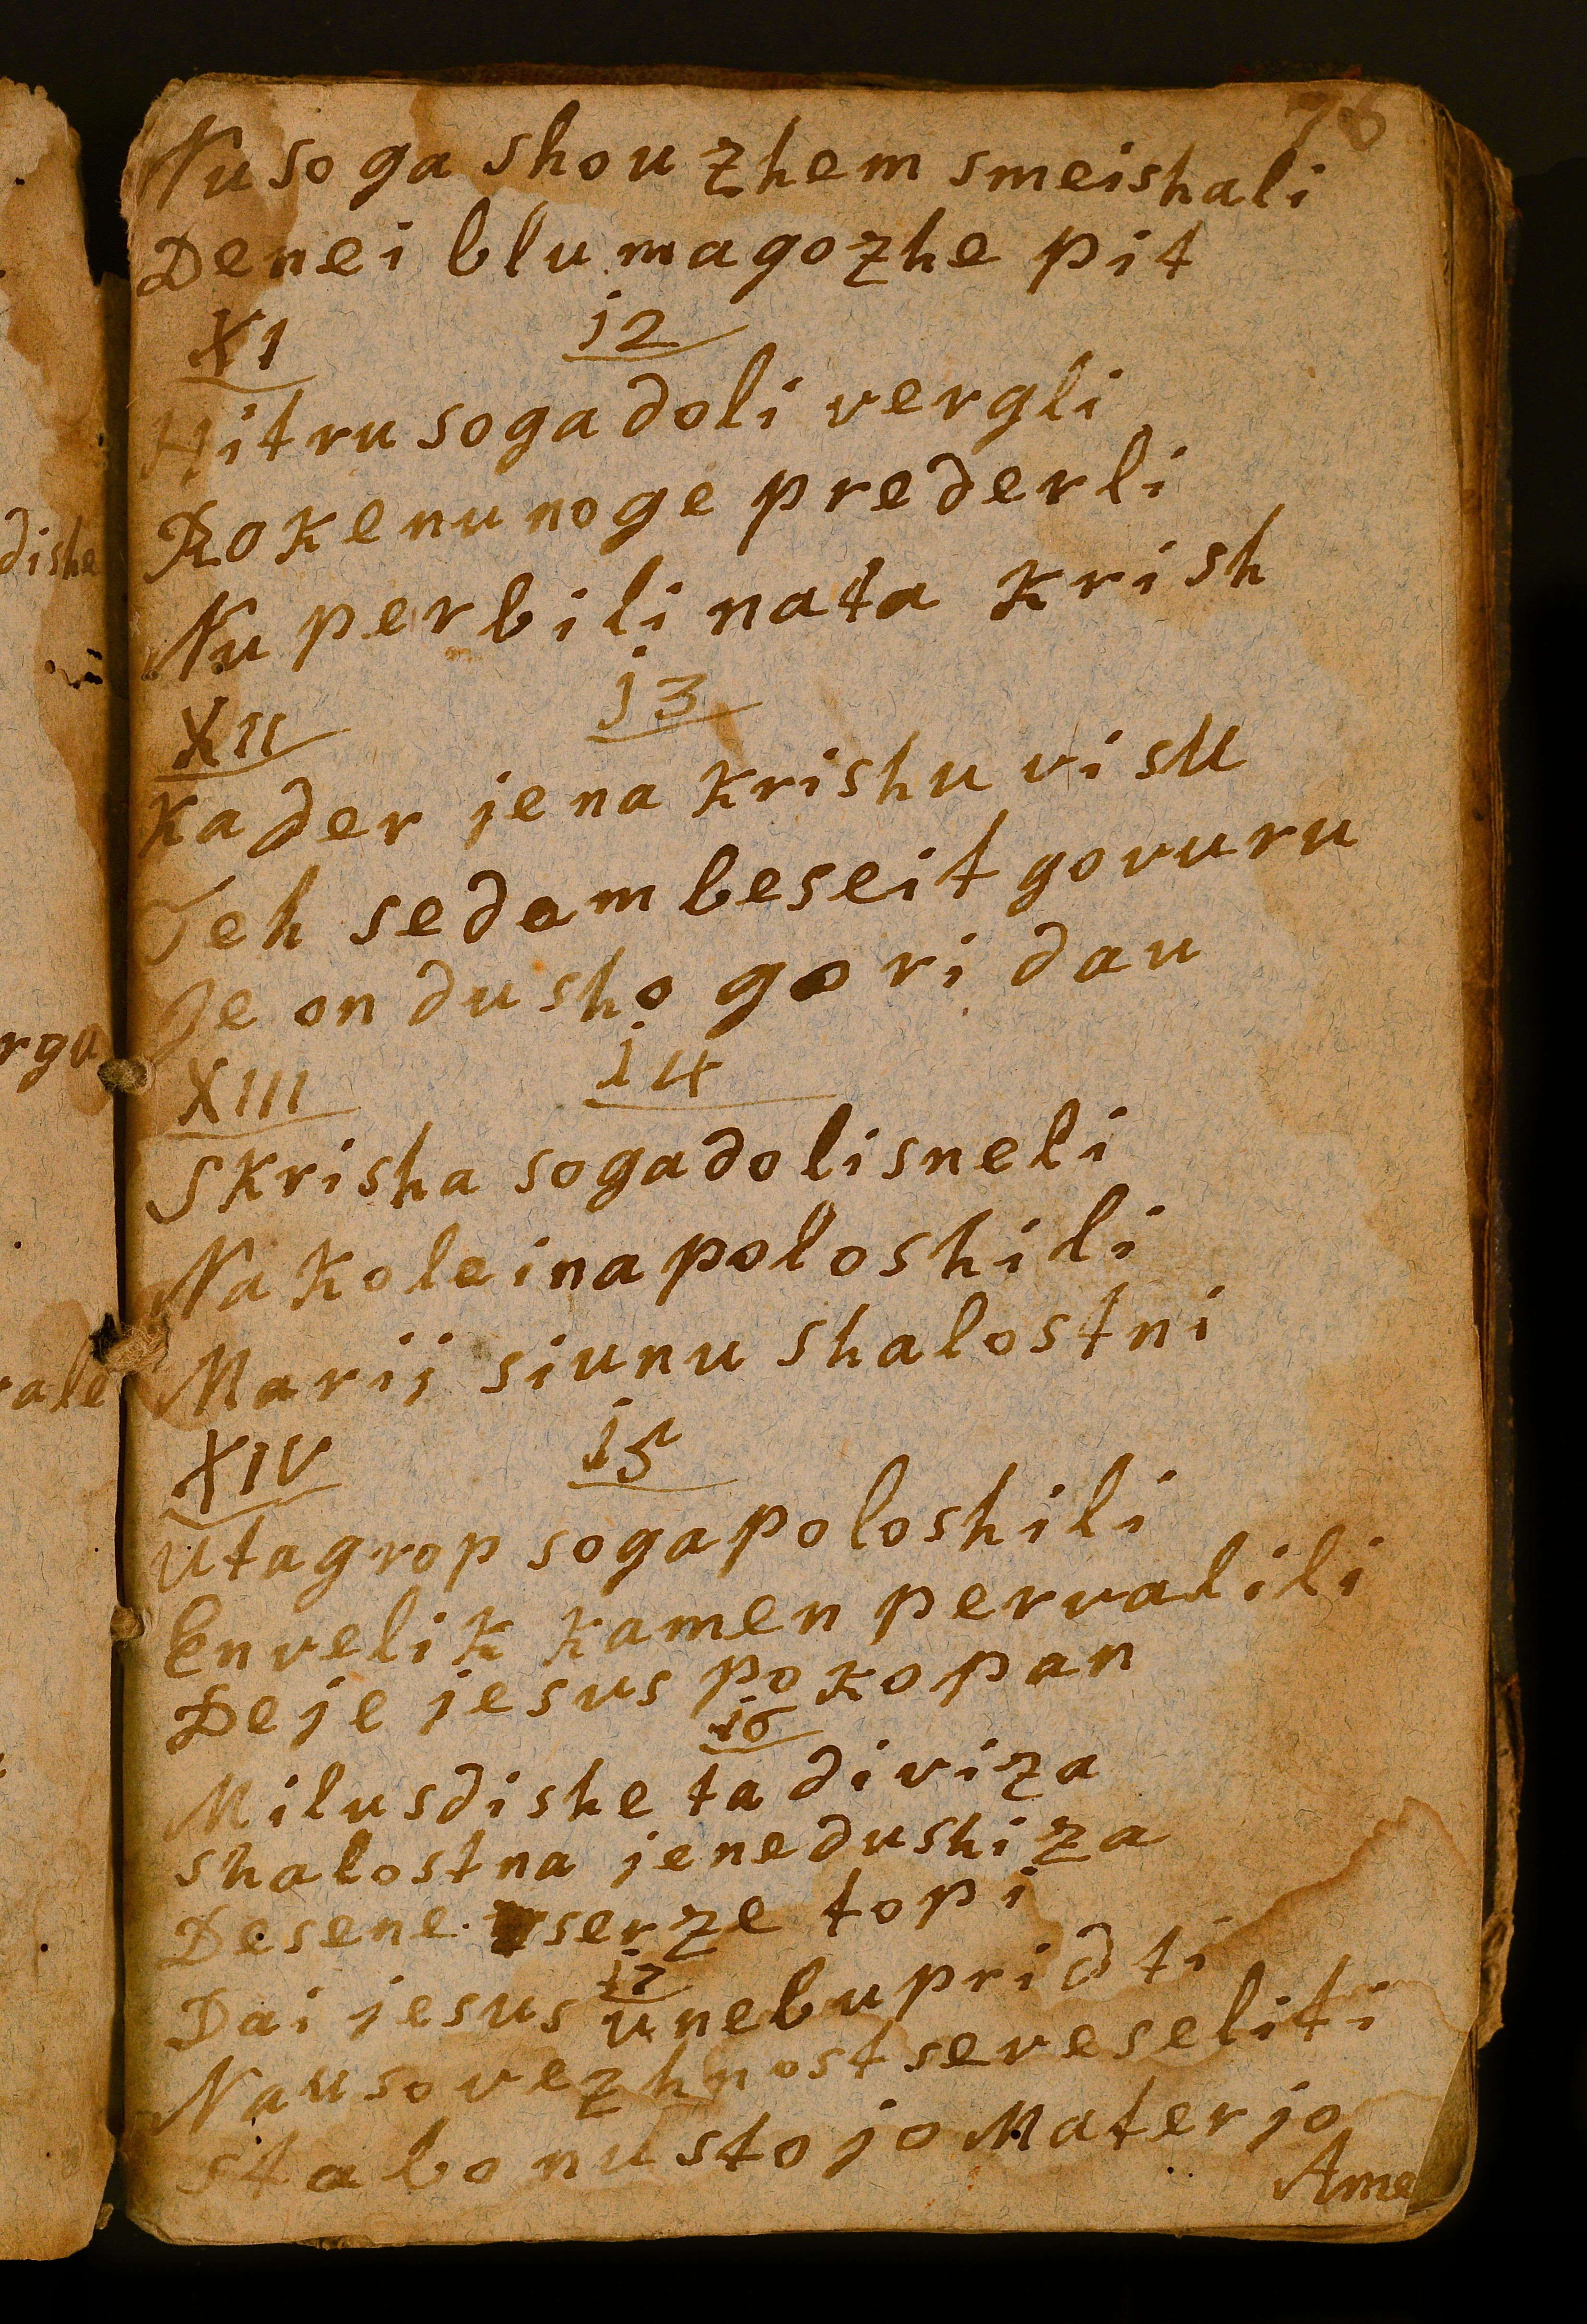 76
Nu soga shouzhem smeishali
Denei blu magozhe pit
XI 12
Hitru soga doli vergli
Rokenu noge prederli
Nu perbili nata krish
XII 13
Kader jena krishu visu
Teh sedem beseit govuru
Je on dusho gori dau
XIII 14
Skrisha soga doli sneli
Na koleina poloshili
Marij siunu shalostni
XIV 15
Uta grop soga poloshili
En velik kamen pervalili
De je jesus pokopan
16
Milusdishe ta diviza
Shalostna je ne dushiza
De se ne serze topi
17
Dai jesus unebu pridti
Na uso vezhnost se veseliti
Stabo nu stojo Materjo
Ame
dishe
rga
rale